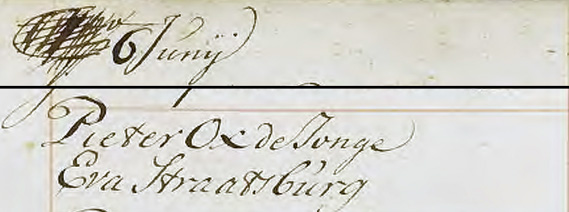 6 Junij
Pieter Ox de Jonge
Eva Straatsburg